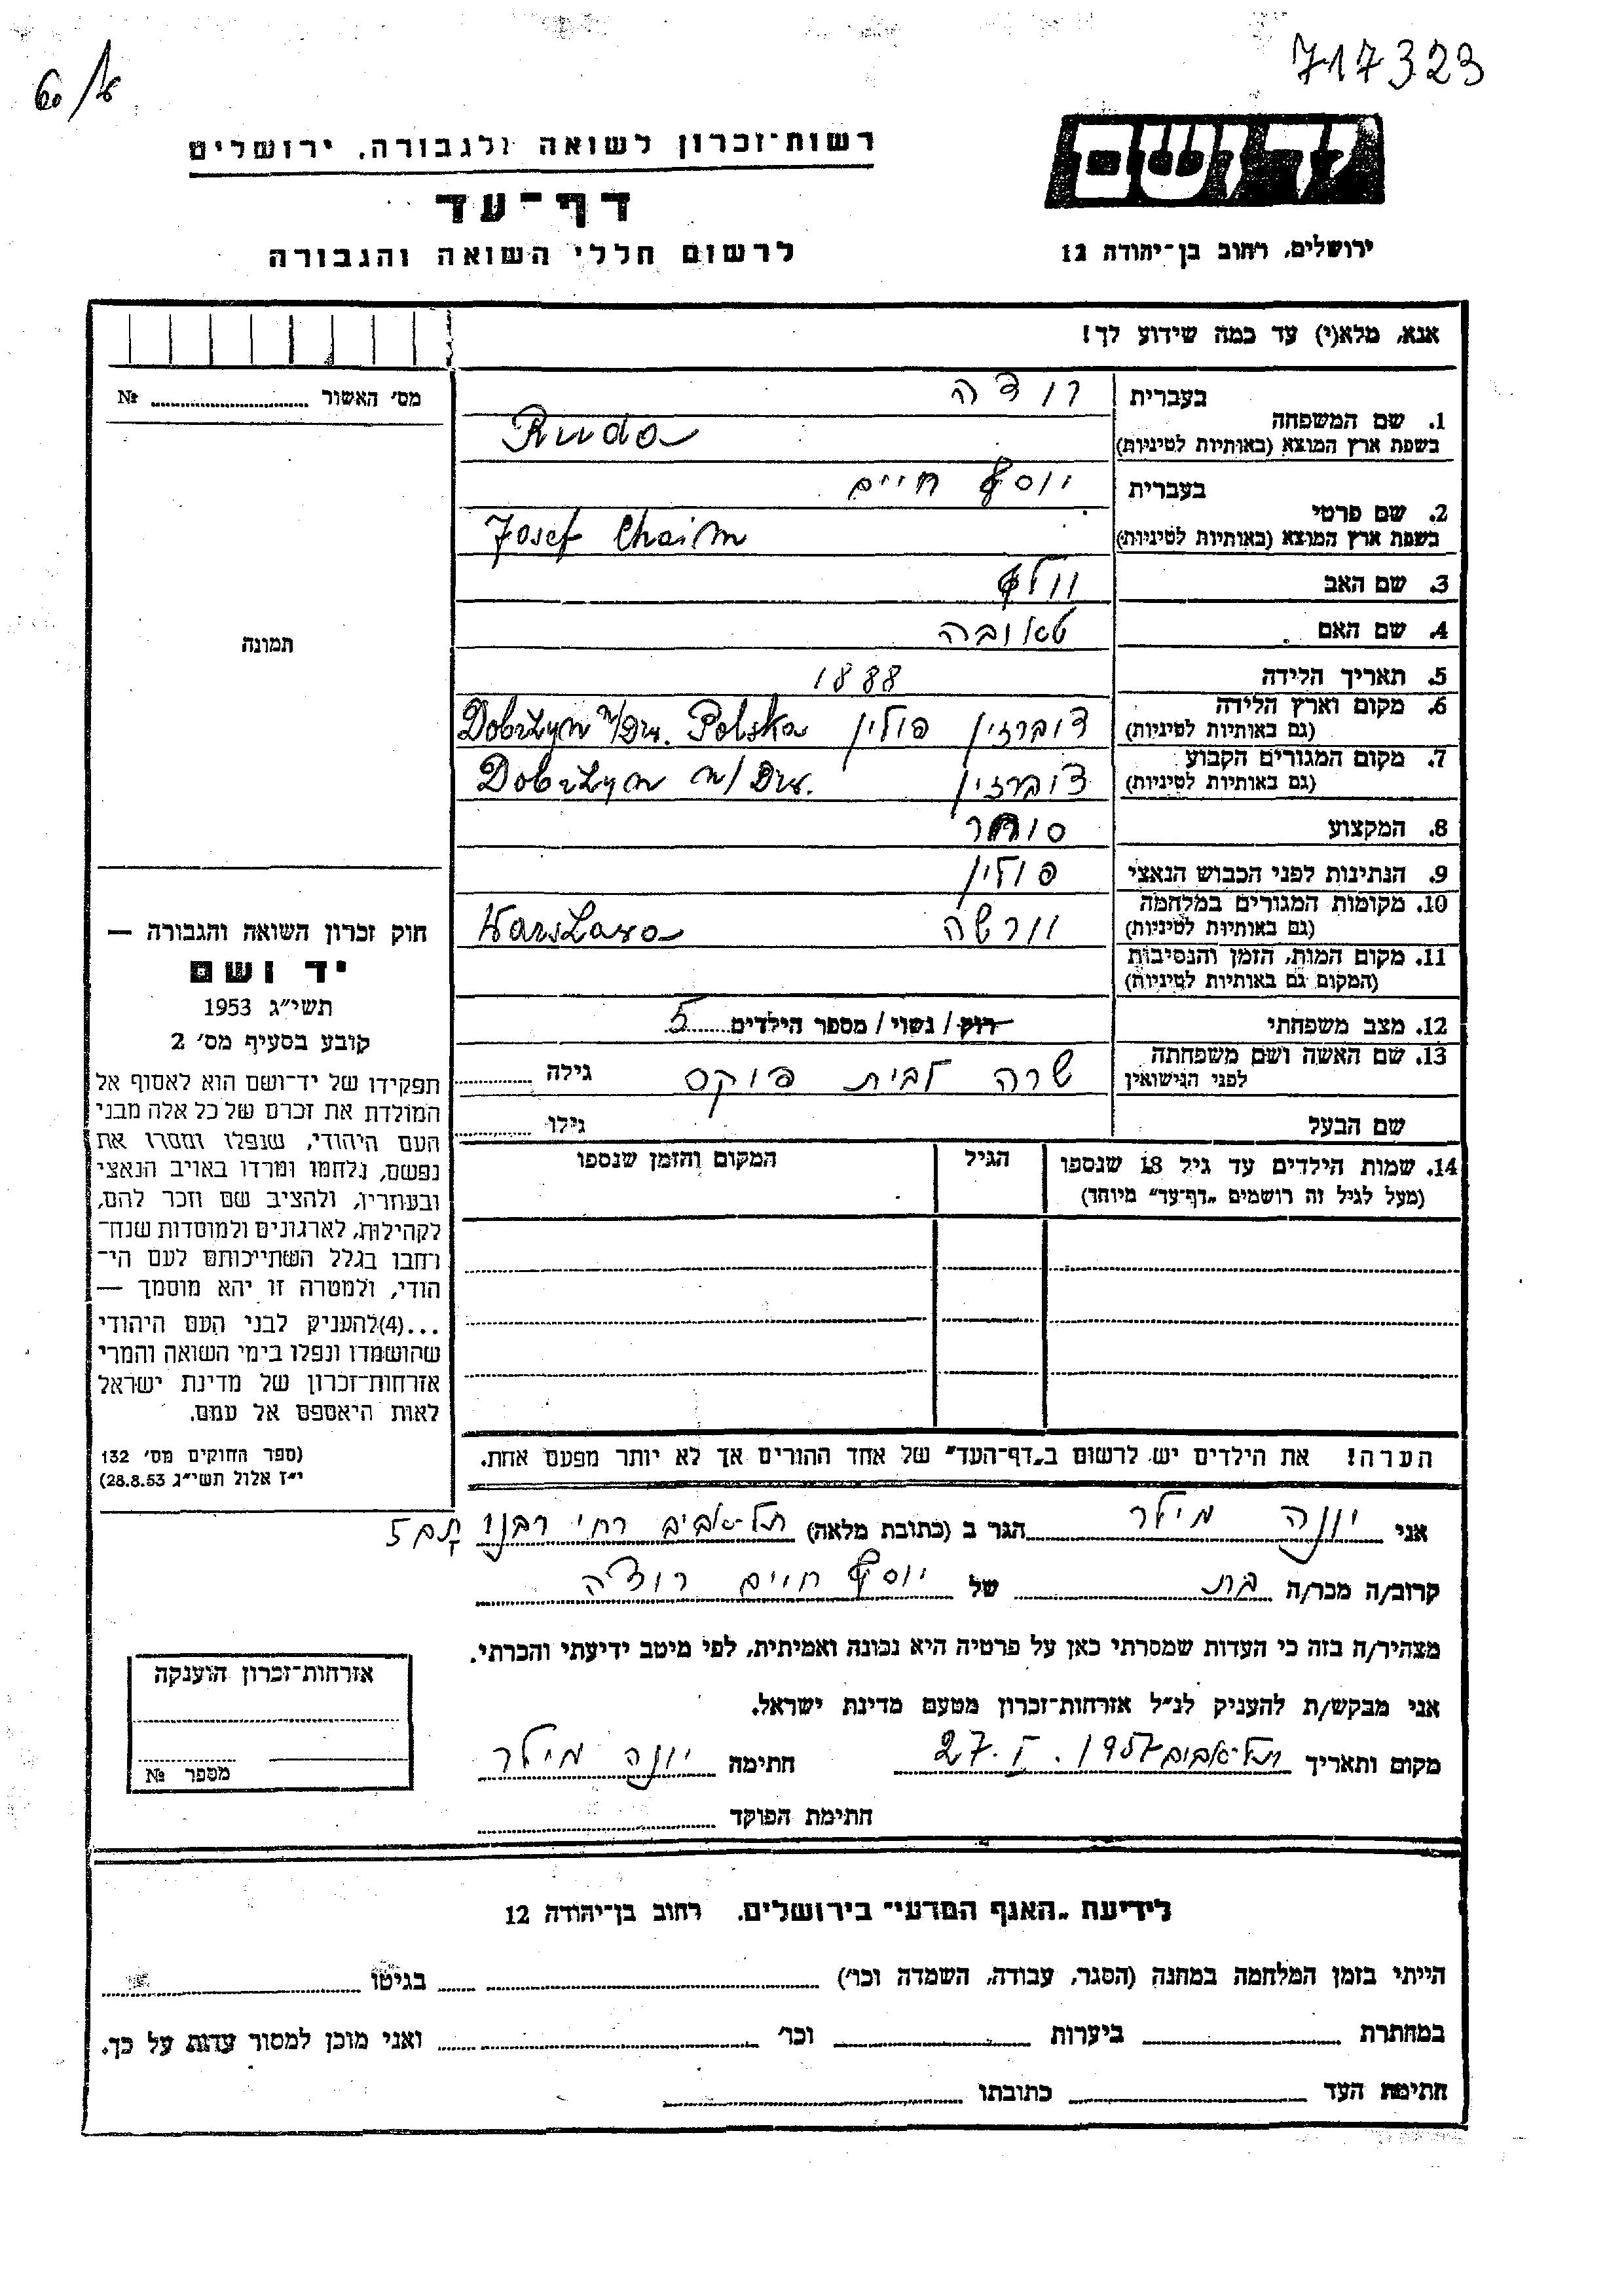 717323
60/
יד ושם
רשות־זכרון לשואה ולגבורה, ירושלים
דף־עד
לרשום חללי השואה והגבורה
ירושלים, רחוב בן־יהודה 12
אנא, מלא(י) עד כמה שידוע לך!
מס׳ האשור ........ №
תמונה
חוק זכרון השואה והגבורה —
יד ושם
תשי״ג 1953
קובע בסעיף מס׳ 2
תפקידו של יד־ושם הוא לאסוף אל
המולדת את זכרם של כל אלה מבני
העם היהודי, שנפלו ומסרו את
נפשם, נלחמו ומרדו באויב הנאצי
ובעוזריו, ולהציב שם וזכר להם,
לקהילות, לארגונים ולמוסדות שנח־
רחבו בגלל השתייכותם לעם הי־
הודי, ולמטרה זו יהא מוסמך —
...(4)להעניק לבני העם היהודי
שהושמדו ונפלו בימי השואה והמרי
אזרחות־זכרון של מדינת ישראל
לאות היאספם אל עמם.
(ספר החוקים מס׳ 132
י״ז אלול תשי״ג 28.8.53)
בעברית רודה
1. שם המשפחה
בשפת ארץ המוצא (באותיות לטיניות) Ruda
בעברית יוסף חיים
2. שם פרטי
בשפת ארץ המוצא (באותיות לטיניות) Josef Chaim
3. שם האב וולף
4. שם האם טאובה
5. תאריך הלידה 1888
6. מקום וארץ הלידה
(גם באותיות לטיניות) דוברזין פולין Dobrzyn n/Drw. Polska
7. מקום המגורים הקבוע
(גם באותיות לטיניות) דוברזין Dobrzyn n/Drw.
8. המקצוע סוחר
9. הנתינות לפני הכבוש הנאצי פולין
10. מקומות המגורים במלחמה
(גם באותיות לטיניות) וורשה Warszawa
11. מקום המות, הזמן והנסיבות
(המקום גם באותיות לטיניות)
12. מצב משפחתי רוק/ נשוי/ מספר הילדים 5
13. שם האשה ושם משפחתה
לפני הנישואין שרה לבית פוקס גילה
שם הבעל גילו
14. שמות הילדים עד גיל 18 שנספו הגיל המקום והזמן שנספו
(מעל לגיל זה רושמים „דף־עד״ מיוחד)
הערה! את הילדים יש לרשום ב„דף־העד״ של אחד ההורים אך לא יותר מפעם אחת.
אני יונה מילר הגר ב (כתובת מלאה) תל־אביב רח׳ רבנו תם 5
קרוב/ה מכר/ה בת של יוסף חיים רודה
מצהיר/ה בזה כי העדות שמסרתי כאן על פרטיה היא נכונה ואמיתית, לפי מיטב ידיעתי והכרתי.
אני מבקש/ת להעניק לנ״ל אזרחות־זכרון מטעם מדינת ישראל.
מקום ותאריך תל־אביב 27.I.1957 חתימה יונה מילר
חתימת הפוקד
אזרחות־זכרון הוענקה
מספר №
לידיעת „האגף המדעי״ בירושלים, רחוב בן־יהודה 12
הייתי בזמן המלחמה במחנה (הסגר, עבודה, השמדה וכו׳) בגיטו
במחתרת ביערות וכו׳ ואני מוכן למסור עדות על כך.
חתימת העד כתובתו